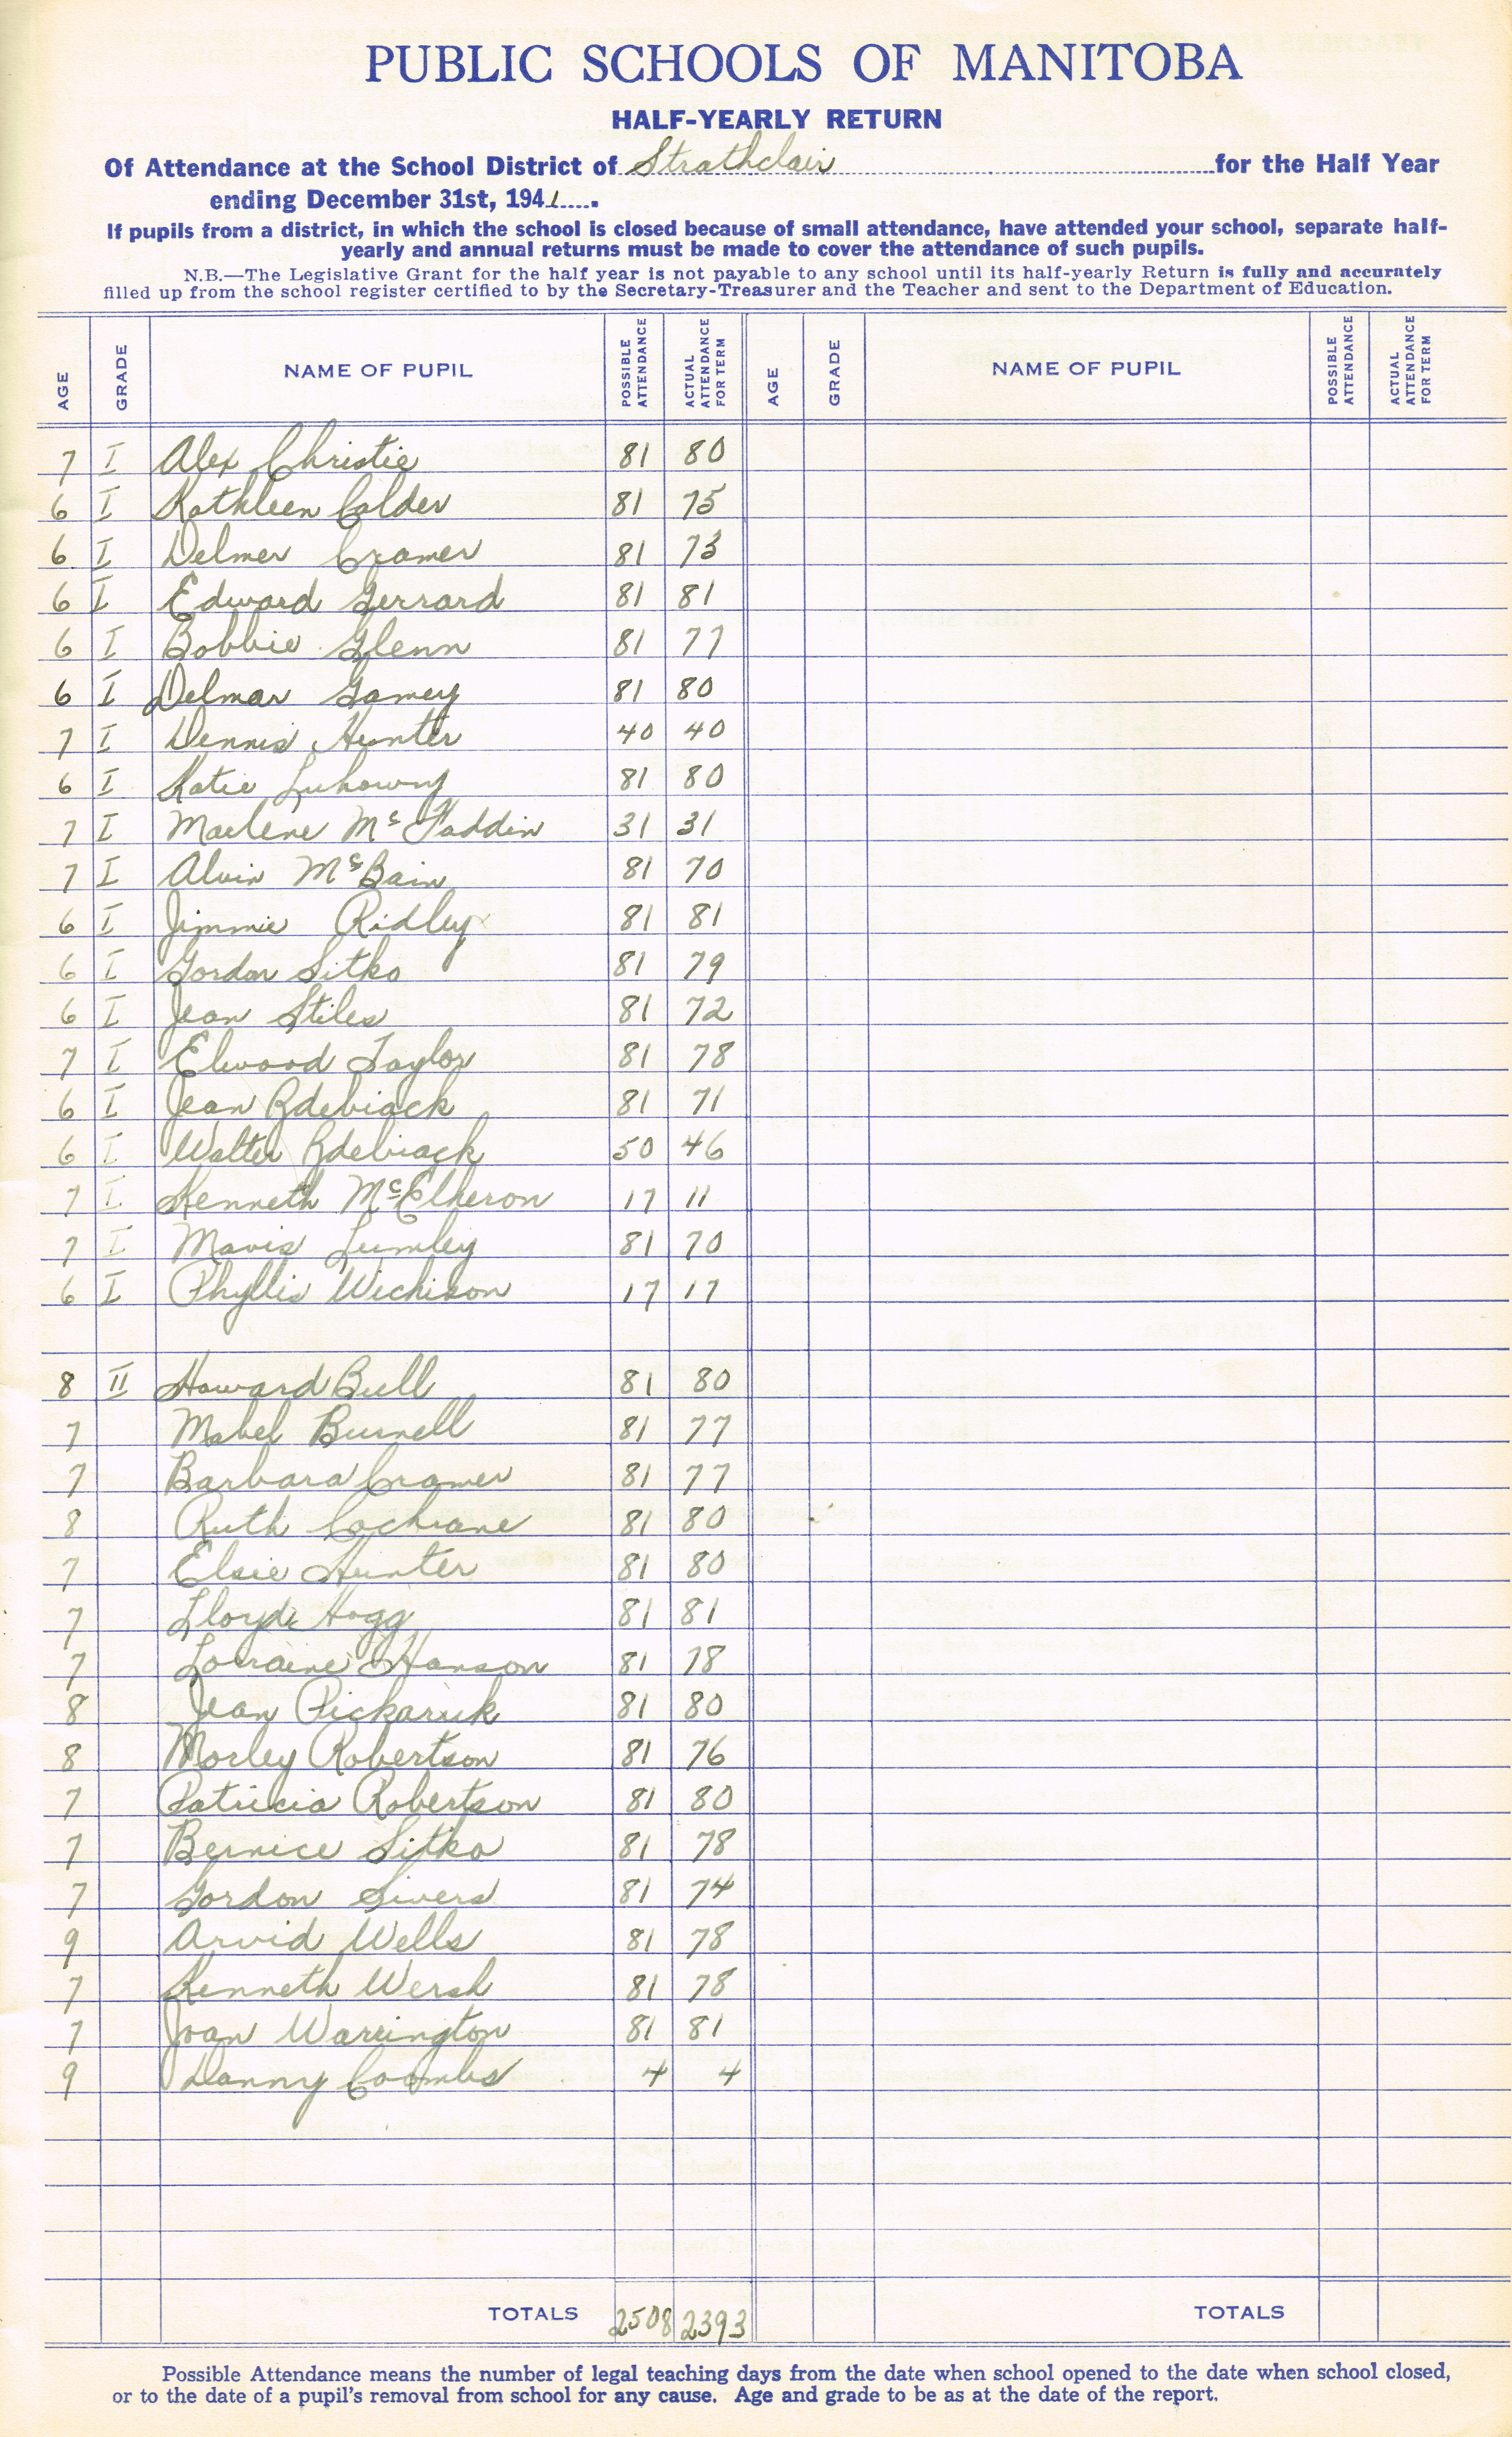 PUBLIC SCHOOLS OF MANITOBA
HALF-YEARLY RETURN
Of Attendance at the School District of Strathclair for the Half Year
ending December 31st, 1941.
If pupils from a district, in which the school is closed because of small attendance, have attended your school, separate half-
yearly and annual returns must be made to cover the attendance of such pupils.
N.B.—The Legislative Grant for the half year is not payable to any school until its half-yearly Return is fully and accurately
filled up from the school register certified to by the Secretary-Treasurer and the Teacher and sent to the Department of Education.
AGE GRADE NAME OF PUPIL POSSIBLE ATTENDANCE ACTUAL ATTENDANCE FOR TERM AGE GRADE NAME OF PUPIL POSSIBLE ATTENDANCE ACTUAL ATTENDANCE FOR TERM
7 I Alex Christie 81 80
6 I Kathleen Calder 81 75
6 I Delmer Cramer 81 73
6 I Edward Gerrard 81 81
6 I Bobbie Glenn 81 77
6 I Delmar Gamey 81 80
7 I Dennis Hunter 40 40
6 I Katie Luhowy 81 80
7 I Marlene McFaddin 31 31
7 I Alvin McBain 81 70
6 I Jimmie Ridley 81 81
6 I Gordon Sitko 81 79
6 I Jean Stiles 81 72
7 I Elwood Taylor 81 78
6 I Jean Zdebiack 81 71
6 I Walter Zdebiack 50 46
7 I Kenneth McElheron 17 11
7 I Mavis Lumley 81 70
6 I Phyllis Wichison 17 17
8 II Howard Bull 81 80
7 Mabel Burnell 81 77
7 Barbara Cramer 81 77
8 Ruth Cochrane 81 80
7 Elsie Hunter 81 80
7 Lloyd Hogg 81 81
7 Lorraine Hanson 81 78
8 Jean Pickaruk 81 80
8 Morley Robertson 81 76
7 Patricia Robertson 81 80
7 Bernice Sitko 81 78
7 Gordon Sivers 81 74
9 Arvid Wells 81 78
7 Kenneth Wersh 81 78
7 Joan Warrington 81 81
9 Danny Coombs 4 4
TOTALS 2508 2393 TOTALS
Possible Attendance means the number of legal teaching days from the date when school opened to the date when school closed,
or to the date of a pupil's removal from school for any cause. Age and grade to be as at the date of the report.